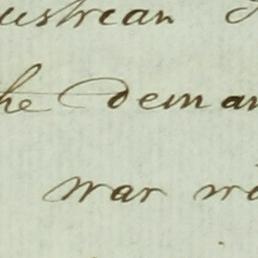 ustrian
the deman
war wi